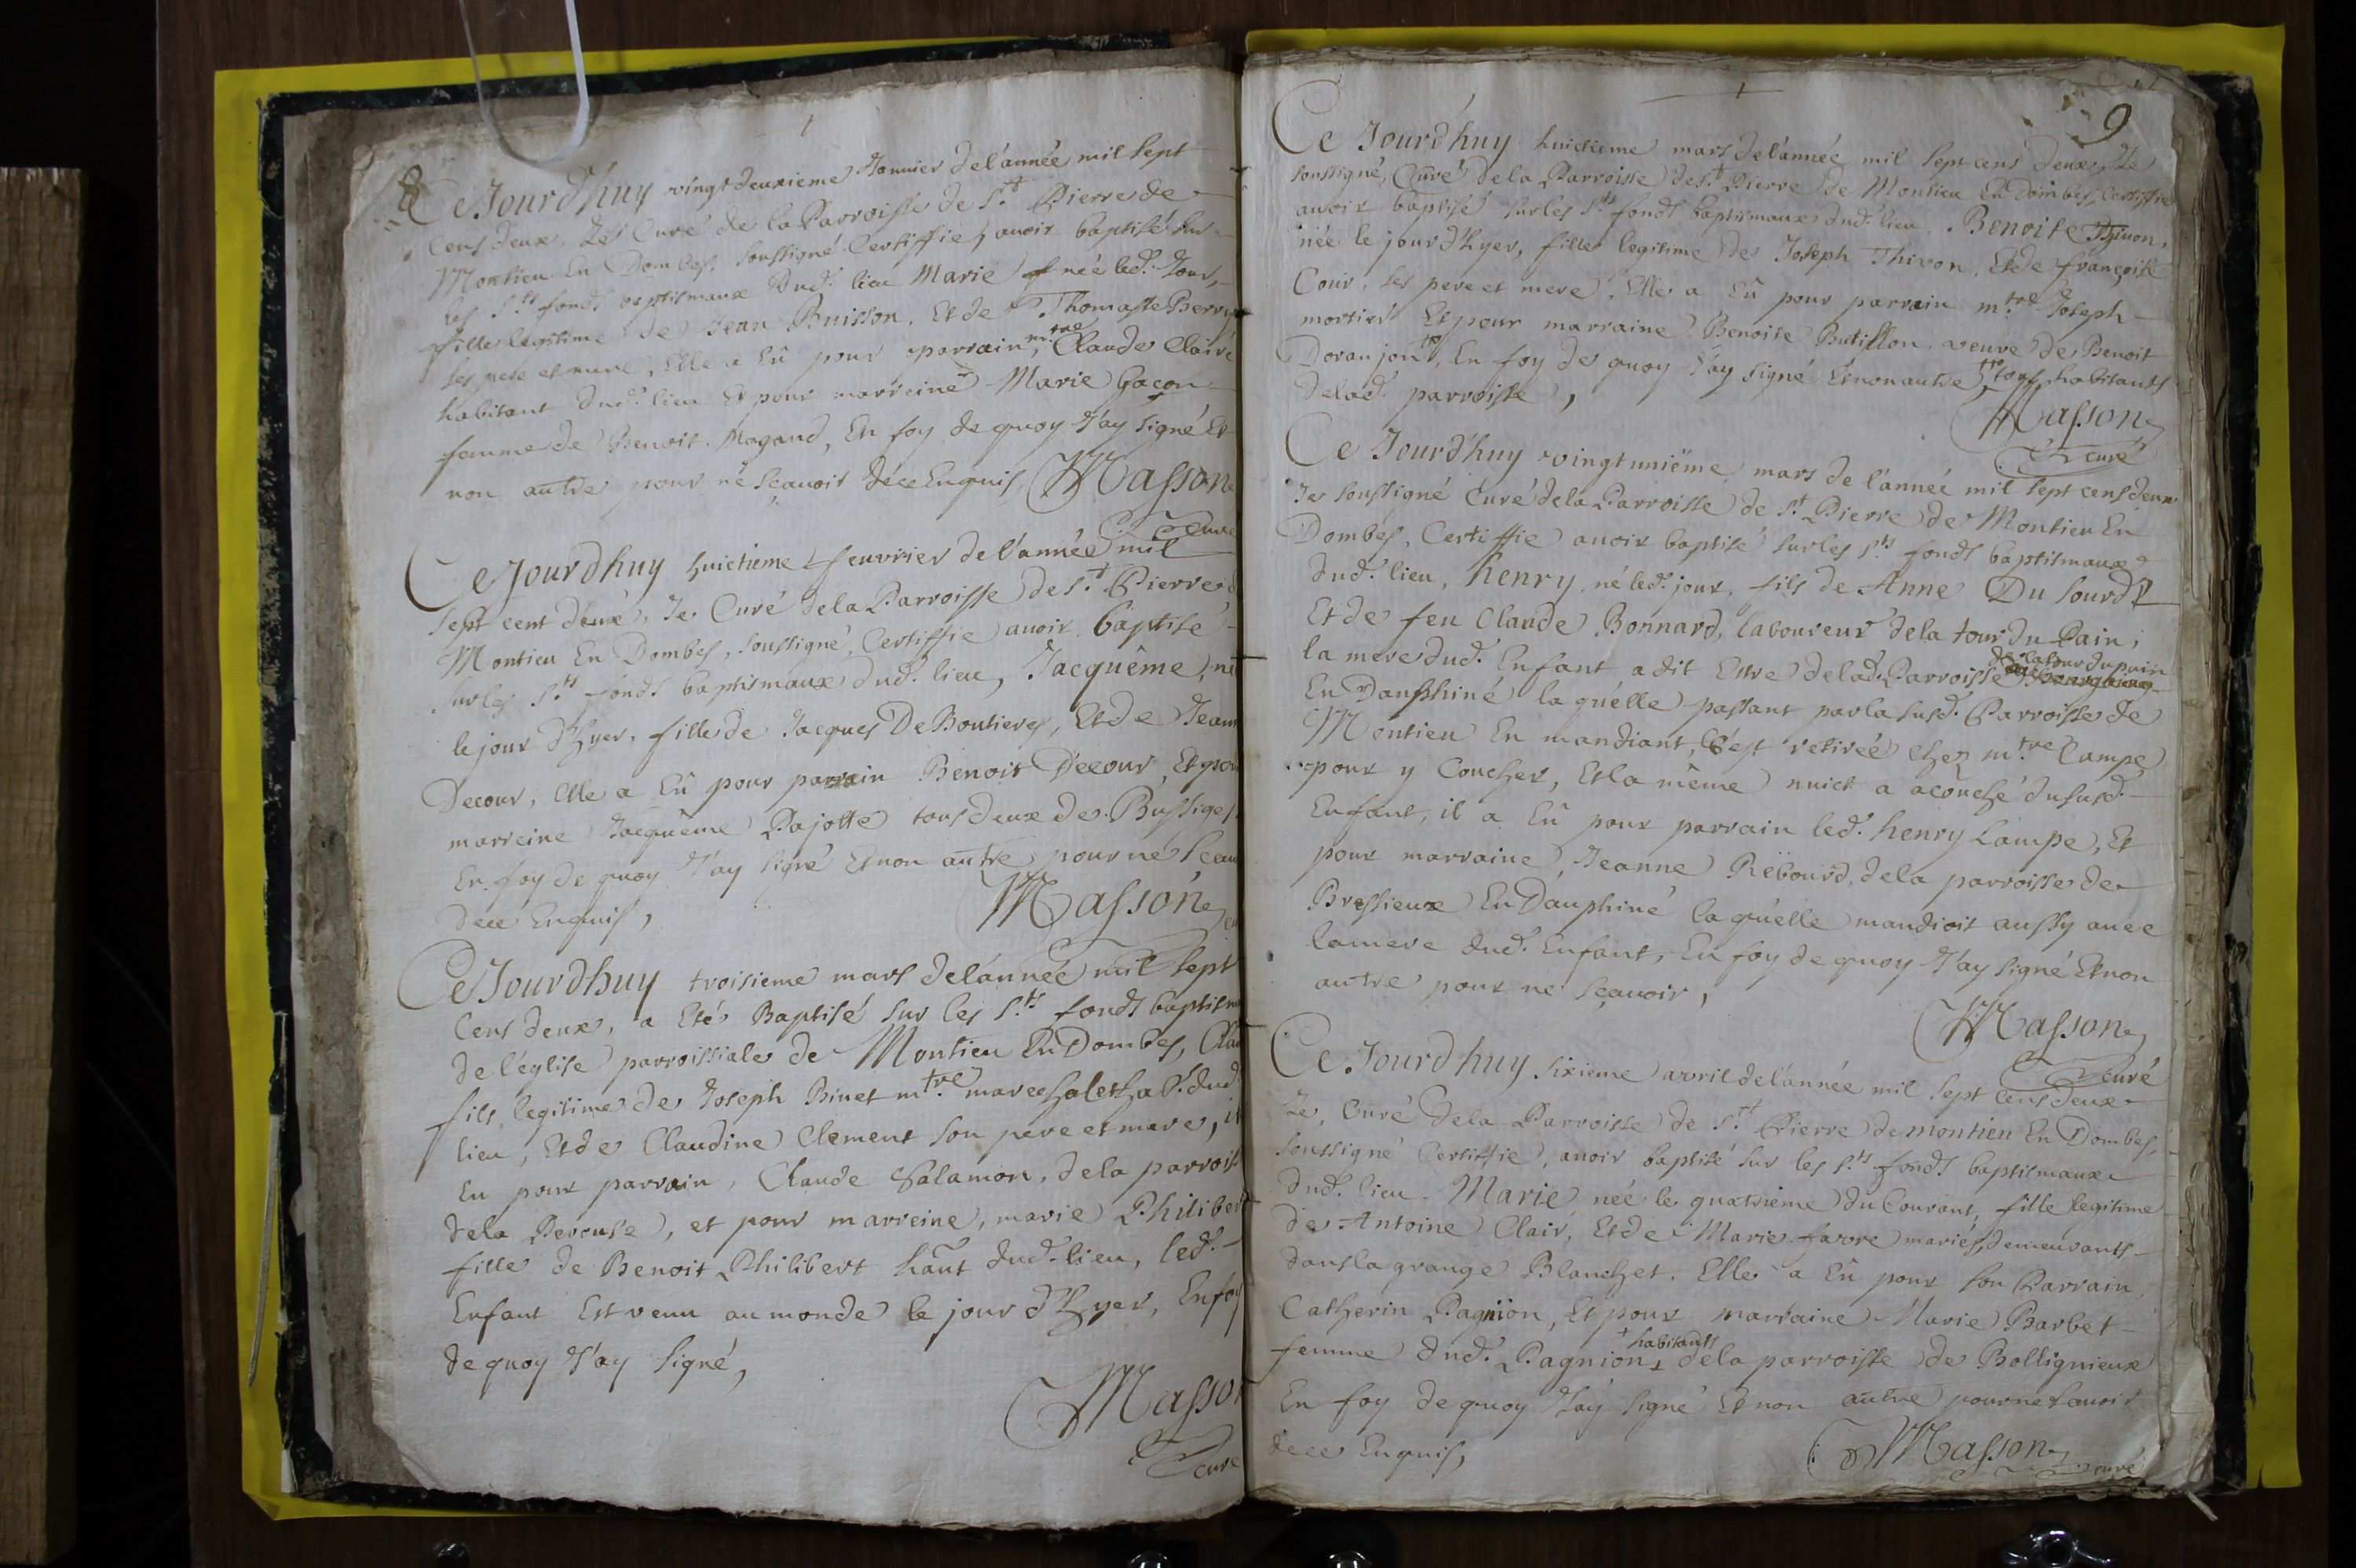 8
Ce Jourd'huy vingt deuxieme Januier de l'année mil sept
cens deux, Je Curé de la Parroisse de St Pierre de
Montieu En Dombes, soussigné Certiffie, auoir baptisé sur
les Sts fonds baptismaux dud. lieu Marie née led. Jour,
fille legitime de Jean Buisson, Et de Thomasse
ses pere et mere, Elle a Eû pour parrain, mtre Claude Clair
habitant dud. lieu Et pour marreine Marie Gacon
femme de Benoit Magand, En foy de quoy J'ay signé Et
non autre pour ne sçauoir dece Enquis, Masson
curé
Ce Jourdhuy huictieme feuvrier de l'année mil
sept cent deux, Je Curé dela Parroisse de St Pierre
Montieu En Dombes, soussigné, Certiffie auoir baptisé
sur les Sts fonds baptismaux dud. lieu, Jacquême, né
le jour d'hyer, fille de Jacques De Boutieres, Et de Jean
Decour, Elle a Eû pour parrain Benoit Decour, Et pour
marreine Jacquême Pajotte tous deux de Bussiges
En foy de quoy J'ay signé Et non autre pour ne sçau
dece Enquis, Masson
Ce Jourdhuy troisieme mars del'année mil sept
cens deux, a Eté Baptisé sur les Sts fonds baptism
de l'église parroissiale de Montieu En Dombes, Clau
fils legitime de Joseph Binet mtre mareschal et hab. dud
lieu, Et de Claudine Clement son pere et mere, il
Eu pour parrain, Claude Salamon, dela parroiss
dela Perouse, et pour marreine, marie Philiber
fille de Benoit Philibert hant dud. lieu, led.
Enfant Est venu au monde le jour d'hyer, En foy
de quoy J'ay signé,
Masson
curé
9
Ce Jourd'huy huictieme mars del'année mil sept cens deux, Je
soussigné, Curé dela Parroisse de St Pierre de Montieu En Dombes, Certiffie
auoir baptisé sur les Sts fonds baptismaux dud. lieu, Benoite Thivon,
née le jour d'hyer, fille legitime de Joseph Thivon, Et de françoise
Cour, ses pere et mere, Elle a Eû pour parrain mtre Joseph
mortier Et pour marraine Benoite Butillon veuve de Benoit
Doranjon, En foy de quoy J'ay signé Et non autre, tous habitants
delad. parroisse,
Masson
curé
Ce Jourd'huy vingtuniême mars de l'année mil sept cens deux
Je soussigné Curé dela Parroisse de St Pierre de Montieu En
Dombes, Certiffie auoir baptisé sur les Sts fonds baptismaux
dud. lieu, henry, né led. jour, fils de Anne Du Sourd
Et de feu Claude Bonnard, laboureur dela tour du Pain,
la mere dud. Enfant a dit Estre delad. Parroisse de la tour du pain
En Dauphiné la quélle passant par la susd. Parroisse de
Montieu En mandiant, s'est retirée chez mtre Lampe
pour y Coucher, Et la même nuict a acouché du susd.
Enfant, il a Eû pour parrain led. henry Lampe, Et
pour marraine, Jeanne Rebourd, dela parroisse de
Bressieux En Dauphiné laquélle mandioit aussy auec
la mere dud. Enfant, En foy de quoy J'ay signé Et non
autre pour ne sçauoir,
Masson
curé
Ce Jourdhuy sixieme avril del'année mil sept cens deux
Je, Curé dela Parroisse de St Pierre de montieu En Dombes,
soussigné Certiffie, auoir baptisé sur les Sts fonds baptismaux
dud. lieu Marie née le quatrieme du Courant, fille legitime
de Antoine Clair, Et de Marie favre mariés, demeurants
dans la grange Blanchet. Elle a Eû pour son Parrain,
Catherin Pagnion, Et pour marraine Marie Barbet
femme dud. Pagnion + habitants dela parroisse de Bolligneux
En foy de quoy J'ay signé Et non autre pour ne sauoir
dece Enquis,
Masson
curé